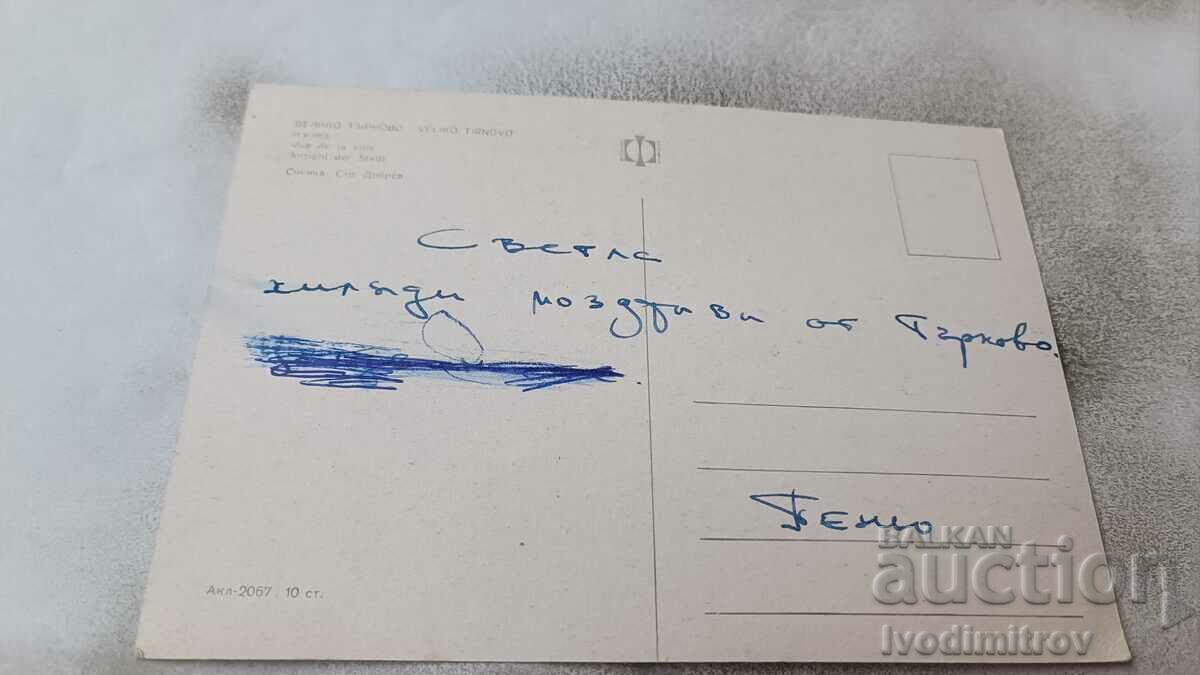 ВЕЛИКО ТЪРНОВО - VELIKO TIRNOVO
Vue de la ville
Ansicht der Stadt
Снимка: Ст. Добрев
Светла
хиляди поздрави от Търново.
Акл-2067. 10 ст.
BALKAN
auction
Ivodimitrov